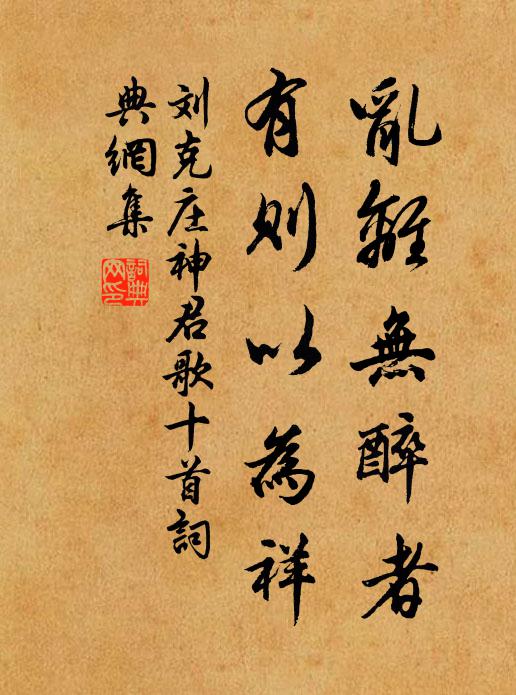 亂離無醉者
有則以為祥
刘克庄神君歌十首詞
典網集
詞典
网印